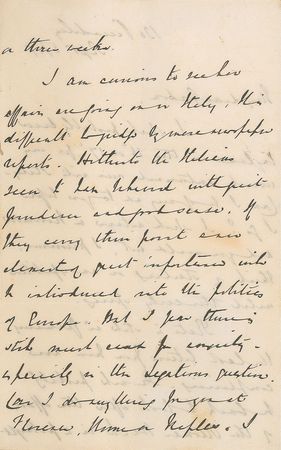 or three weeks.
I am curious to see how
affairs are going on in Italy, it is
difficult to judge by mere newspaper
reports. Hitherto the Italians
seem to have behaved with great
prudence and good sense. If
they carry their point a new
element of great importance will
be introduced into the politics
of Europe. But I fear there is
still much cause for anxiety -
especially in the question.
Can I do anything for you at
Florence, Rome or Naples. I